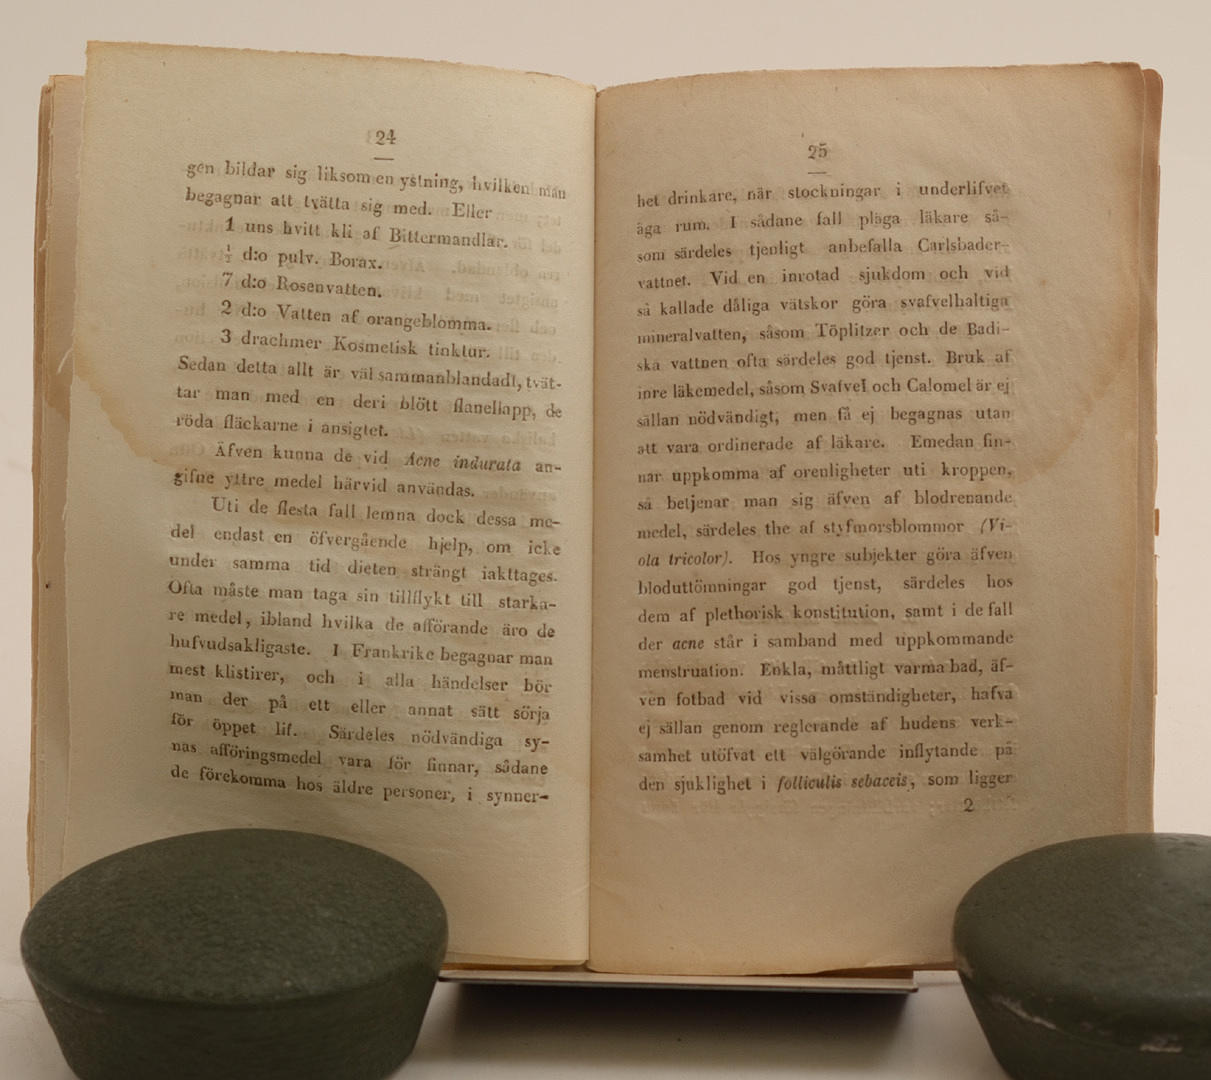 24
gen bildar sig liksom en ystning, hvilken man
begagnar att tvätta sig med. Eller
1 uns hvitt kli af Bittermandlar.
½ d:o pulv. Borax.
7 d:o Rosenvatten.
2 d:o Vatten af orangeblomma.
3 drachmer Kosmetisk tinktur.
Sedan detta allt är väl sammanblandadt, tvät-
tar man med en deri blött flanellapp, de
röda fläckarne i ansigtet.
Äfven kunna de vid Acne indurata an-
gifne yttre medel härvid användas.
Uti de flesta fall lemna dock dessa me-
del endast en öfvergående hjelp, om icke
under samma tid dieten strängt iakttages.
Ofta måste man taga sin tillflykt till starka-
re medel, ibland hvilka de afförande äro de
hufvudsakligaste. I Frankrike begagnar man
mest klistirer, och i alla händelser bör
man der på ett eller annat sätt sörja
för öppet lif. Särdeles nödvändiga sy-
nas afföringsmedel vara för finnar, sådane
de förekomma hos äldre personer, i synner-
25
het drinkare, när stockningar i underlifvet
äga rum. I sådane fall pläga läkare så-
som särdeles tjenligt anbefalla Carlsbader-
vattnet. Vid en inrotad sjukdom och vid
så kallade dåliga vätskor göra svafvelhaltiga
mineralvatten, såsom Töplitzer och de Badi-
ska vattnen ofta särdeles god tjenst. Bruk af
inre läkemedel, såsom Svafvel och Calomel är ej
sällan nödvändigt, men få ej begagnas utan
att vara ordinerade af läkare. Emedan fin-
nar uppkomma af orenligheter uti kroppen,
så betjenar man sig äfven af blodrenande
medel, särdeles the af styfmorsblommor (Vi-
ola tricolor). Hos yngre subjekter göra äfven
bloduttömningar god tjenst, särdeles hos
dem af plethorisk konstitution, samt i de fall
der acne står i samband med uppkommande
menstruation. Enkla, måttligt varma bad, äf-
ven fotbad vid vissa omständigheter, hafva
ej sällan genom reglerande af hudens verk-
samhet utöfvat ett välgörande inflytande på
den sjuklighet i folliculis sebaceis, som ligger
2